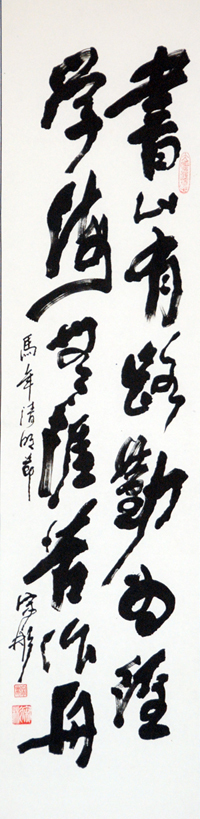 書山有路勤为徑
学海無涯苦作舟
馬年清明節